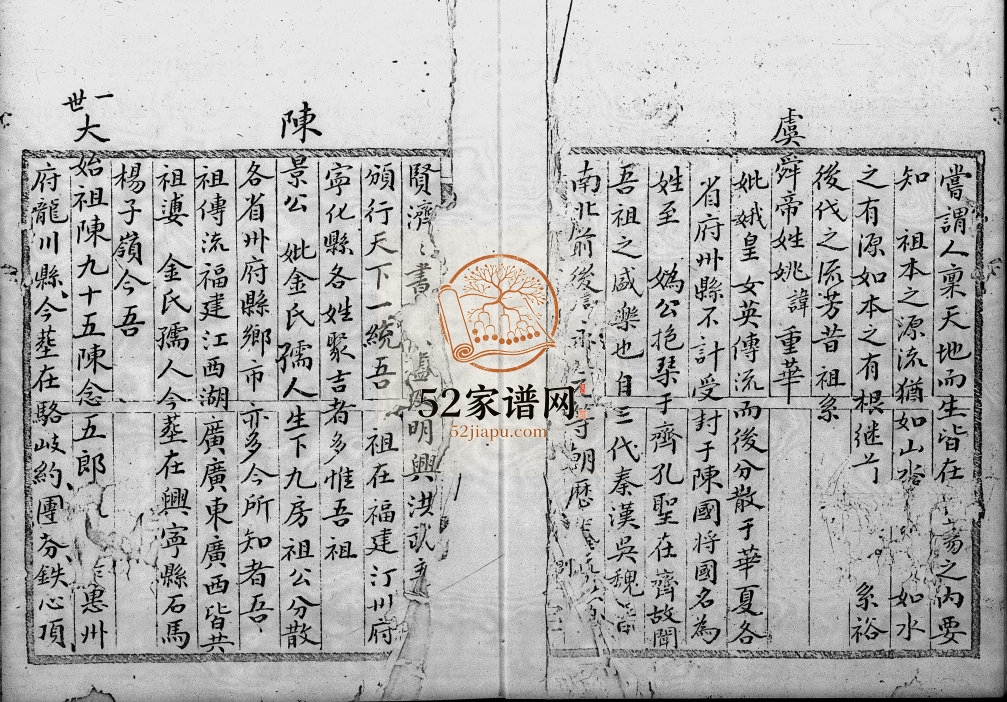 嘗謂人稟天地而生皆在之內要
知 祖本之源流猶如山 如水
之有源如本之有根继 系裕
後代之流芳昔 祖系
虞舜帝姓姚諱重華
妣娥皇女英傳流而後分散于華夏各
省府州縣不計受封于陳國将國名為
姓至 媯公抱琹于齊孔聖在齊故聞
吾祖之咸樂也自三代秦漢吳魏
南北前後 等朝歷
賢濟 書 明興洪武
頒行天下一統吾 祖在福建汀州府
寧化縣各姓聚吉者多惟吾祖
陳
景公 妣金氏孺人生下九房祖公分散
各省州府縣鄉市亦多今所知者吾
祖傳流福建江西湖廣廣東廣西皆共
祖婆 金氏孺人今塟在興寧縣石馬
楊子嶺今吾
一世
大始祖陳九十五陳念五郎 惠州
府龍川縣今塟在駱岐約團夯鉄心頂
52家谱网
52jiapu.com